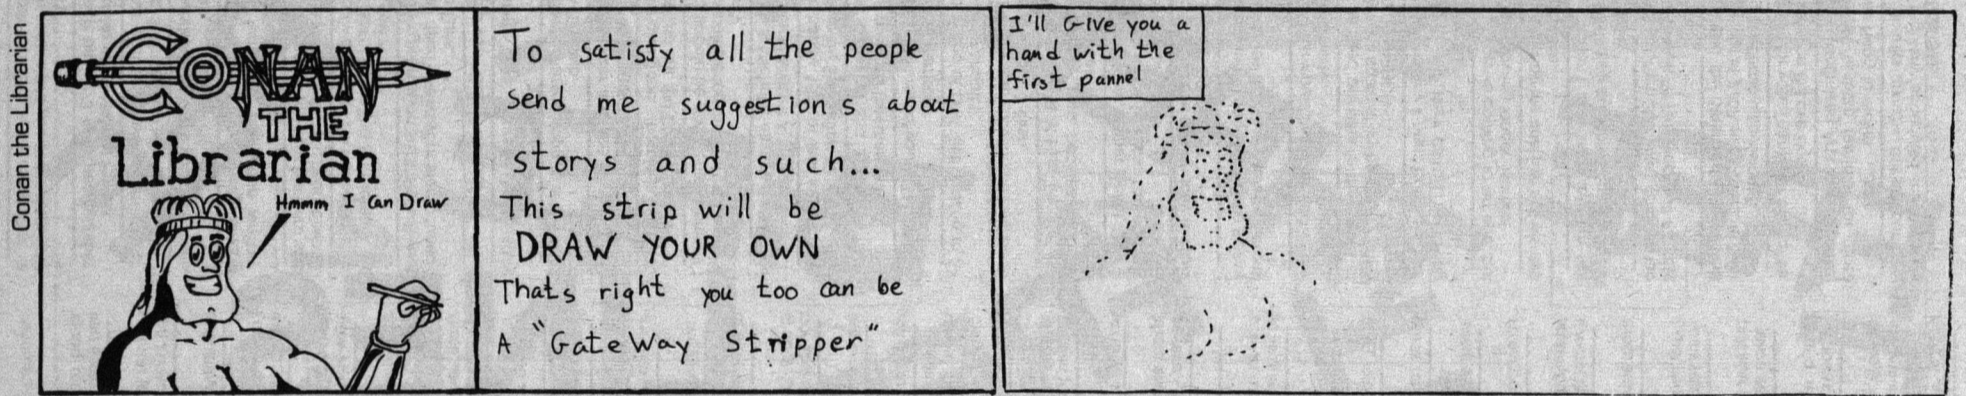 Conan the Librarian
CONAN
THE
Librarian
Hmmm I Can Draw
To satisfy all the people
send me suggestions about
storys and such...
This strip will be
DRAW YOUR OWN
Thats right you too can be
A "GateWay Stripper"
I'll Give you a
hand with the
first pannel